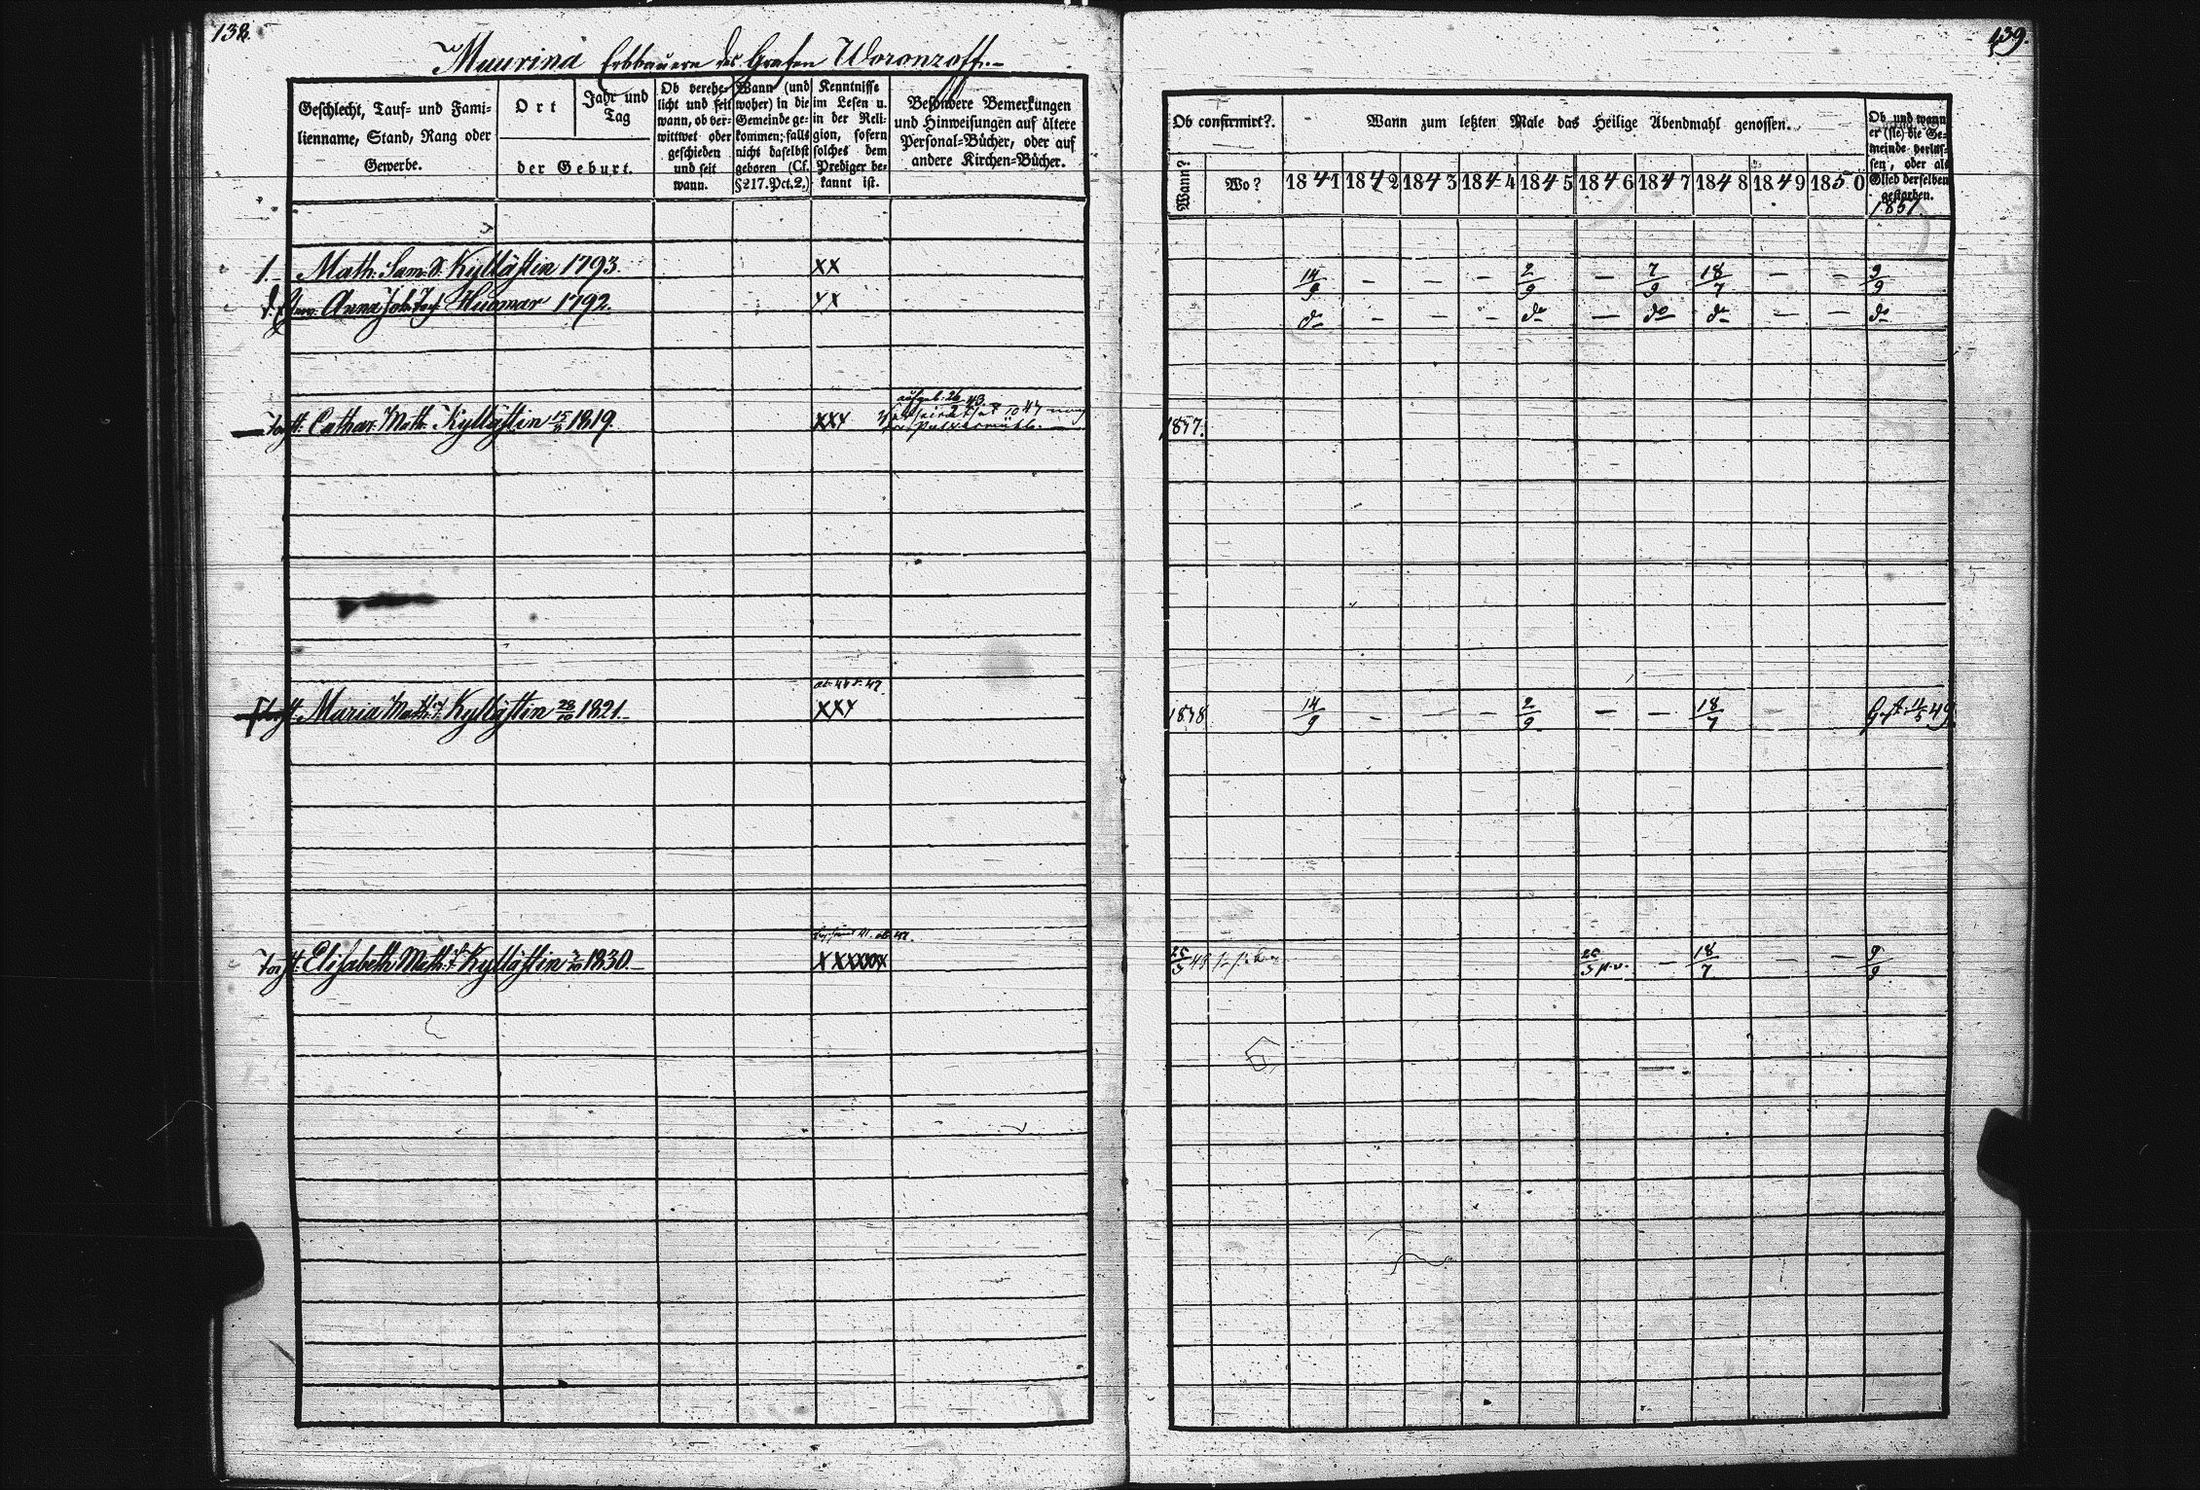 138.
Muurina Erbbauern des Grafen Woronzoff.
Geschlecht, Tauf- und Fami-
lienname, Stand, Rang oder
Gewerbe.
Ort
Jahr und
Tag
der Geburt.
Ob verehe-
licht und seit
wann, ob ver-
wittwet oder
geschieden
und seit
wann.
Wann (und
woher) in die
Gemeinde ge-
kommen; falls
nicht daselbst
geboren (Cf.
§ 217. Pct. 2.)
Kenntnisse
im Lesen u.
in der Reli-
gion, sofern
solches dem
Prediger be-
kannt ist.
Besondere Bemerkungen
und Hinweisungen auf ältere
Personal-Bücher, oder auf
andere Kirchen-Bücher.
1. Math. Sam. S. KylläStin 1793. XX
Anna Joh. Toch. Hunnar 1792. XX
Tocht. Cathar. Math. Kyllästin 1819. XXX
Tocht. Maria Math. T. Kyllästin 28/10 1821. XXX
Tocht. Elisabeth Math. T. Kyllästin 1830. XXXXXX
139.
Ob confirmirt?.
Wann?
Wo?
Wann zum letzten Male das Heilige Abendmahl genossen.
1841 1842 1843 1844 1845 1846 1847 1848 1849 1850
Ob und wann
er (sie) die Ge-
meinde verlas-
sen, oder als
Glied derselben
gestorben.
1851
14/9 – – – 2/9 – 7/9 18/7 – – 9/9
do – – – do – do do – – do
14/9 – – – 2/9 – – 18/7 –
– 18/7 – – 9/9